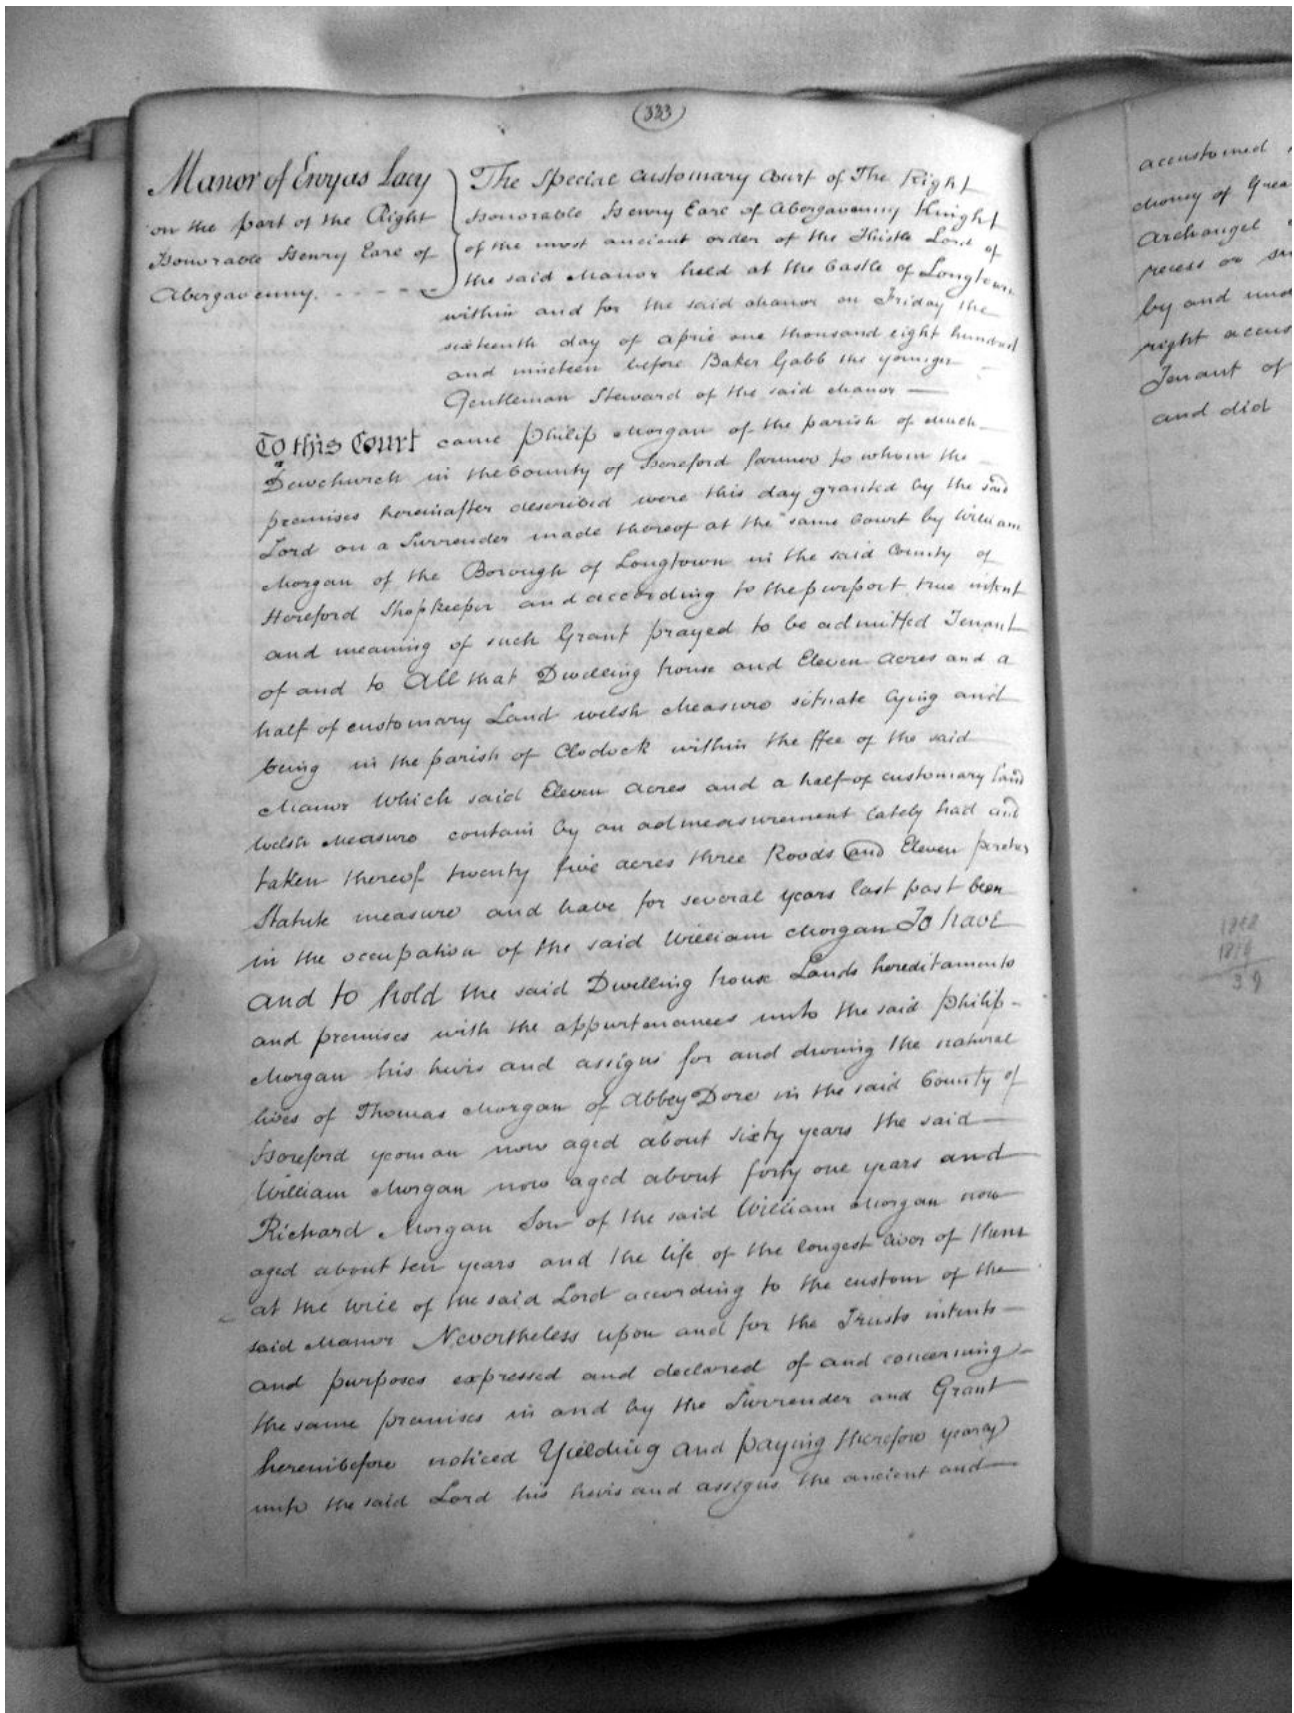 (333)
Manor of Ewyas Lacy
on the part of the Right
Honorable Henry Earl of
Abergavenny.
The Special Customary Court of The Right
Honorable Henry Earl of Abergavenny Knight
of the most ancient order of the Thistle Lord of
the said Manor held at the Castle of Longtown
within and for the said Manor on Friday the
sixteenth day of April one thousand eight hundred
and nineteen before Baker Gabb the younger
Gentleman Steward of the said Manor
To this Court came Philip Morgan of the parish of Much
Dewchurch in the County of Hereford farmer to whom the
premises hereinafter described were this day granted by the said
Lord on a Surrender made thereof at the same Court by William
Morgan of the Borough of Longtown in the said County of
Hereford Shopkeeper and according to the purport true intent
and meaning of such Grant prayed to be admitted Tenant
of and to All that Dwelling house and Eleven Acres and a
half of customary Land welsh Measure situate lying and
being in the parish of Clodock within the ffee of the said
Manor Which said Eleven Acres and a half of customary Land
Welsh Measure contain by an admeasurement lately had and
taken thereof twenty five acres three Roods and Eleven perches
Statute measure and have for several years last past been
in the occupation of the said William Morgan To have
and to hold the said Dwelling house Lands hereditaments
and premises with the appurtenances unto the said Philip
Morgan his heirs and assigns for and during the natural
lives of Thomas Morgan of Abbey Dore in the said County of
Hereford yeoman now aged about sixty years the said
William Morgan now aged about forty one years and
Richard Morgan Son of the said William Morgan now
aged about ten years and the life of the longest liver of them
at the Will of the said Lord according to the custom of the
said Manor Nevertheless upon and for the Trusts intents
and purposes expressed and declared of and concerning
the same premises in and by the Surrender and Grant
hereinbefore noticed Yielding and paying therefore yearly
unto the said Lord his heirs and assigns the ancient and
accustomed
Money of Grea
Archangel
recess or su
by and und
right accus
Tenant of
and did
1858
1819
39